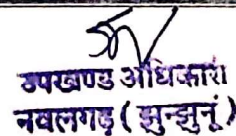 उपखण्ड अधिकारी
नवलगढ़ ( झुन्झुनूं )